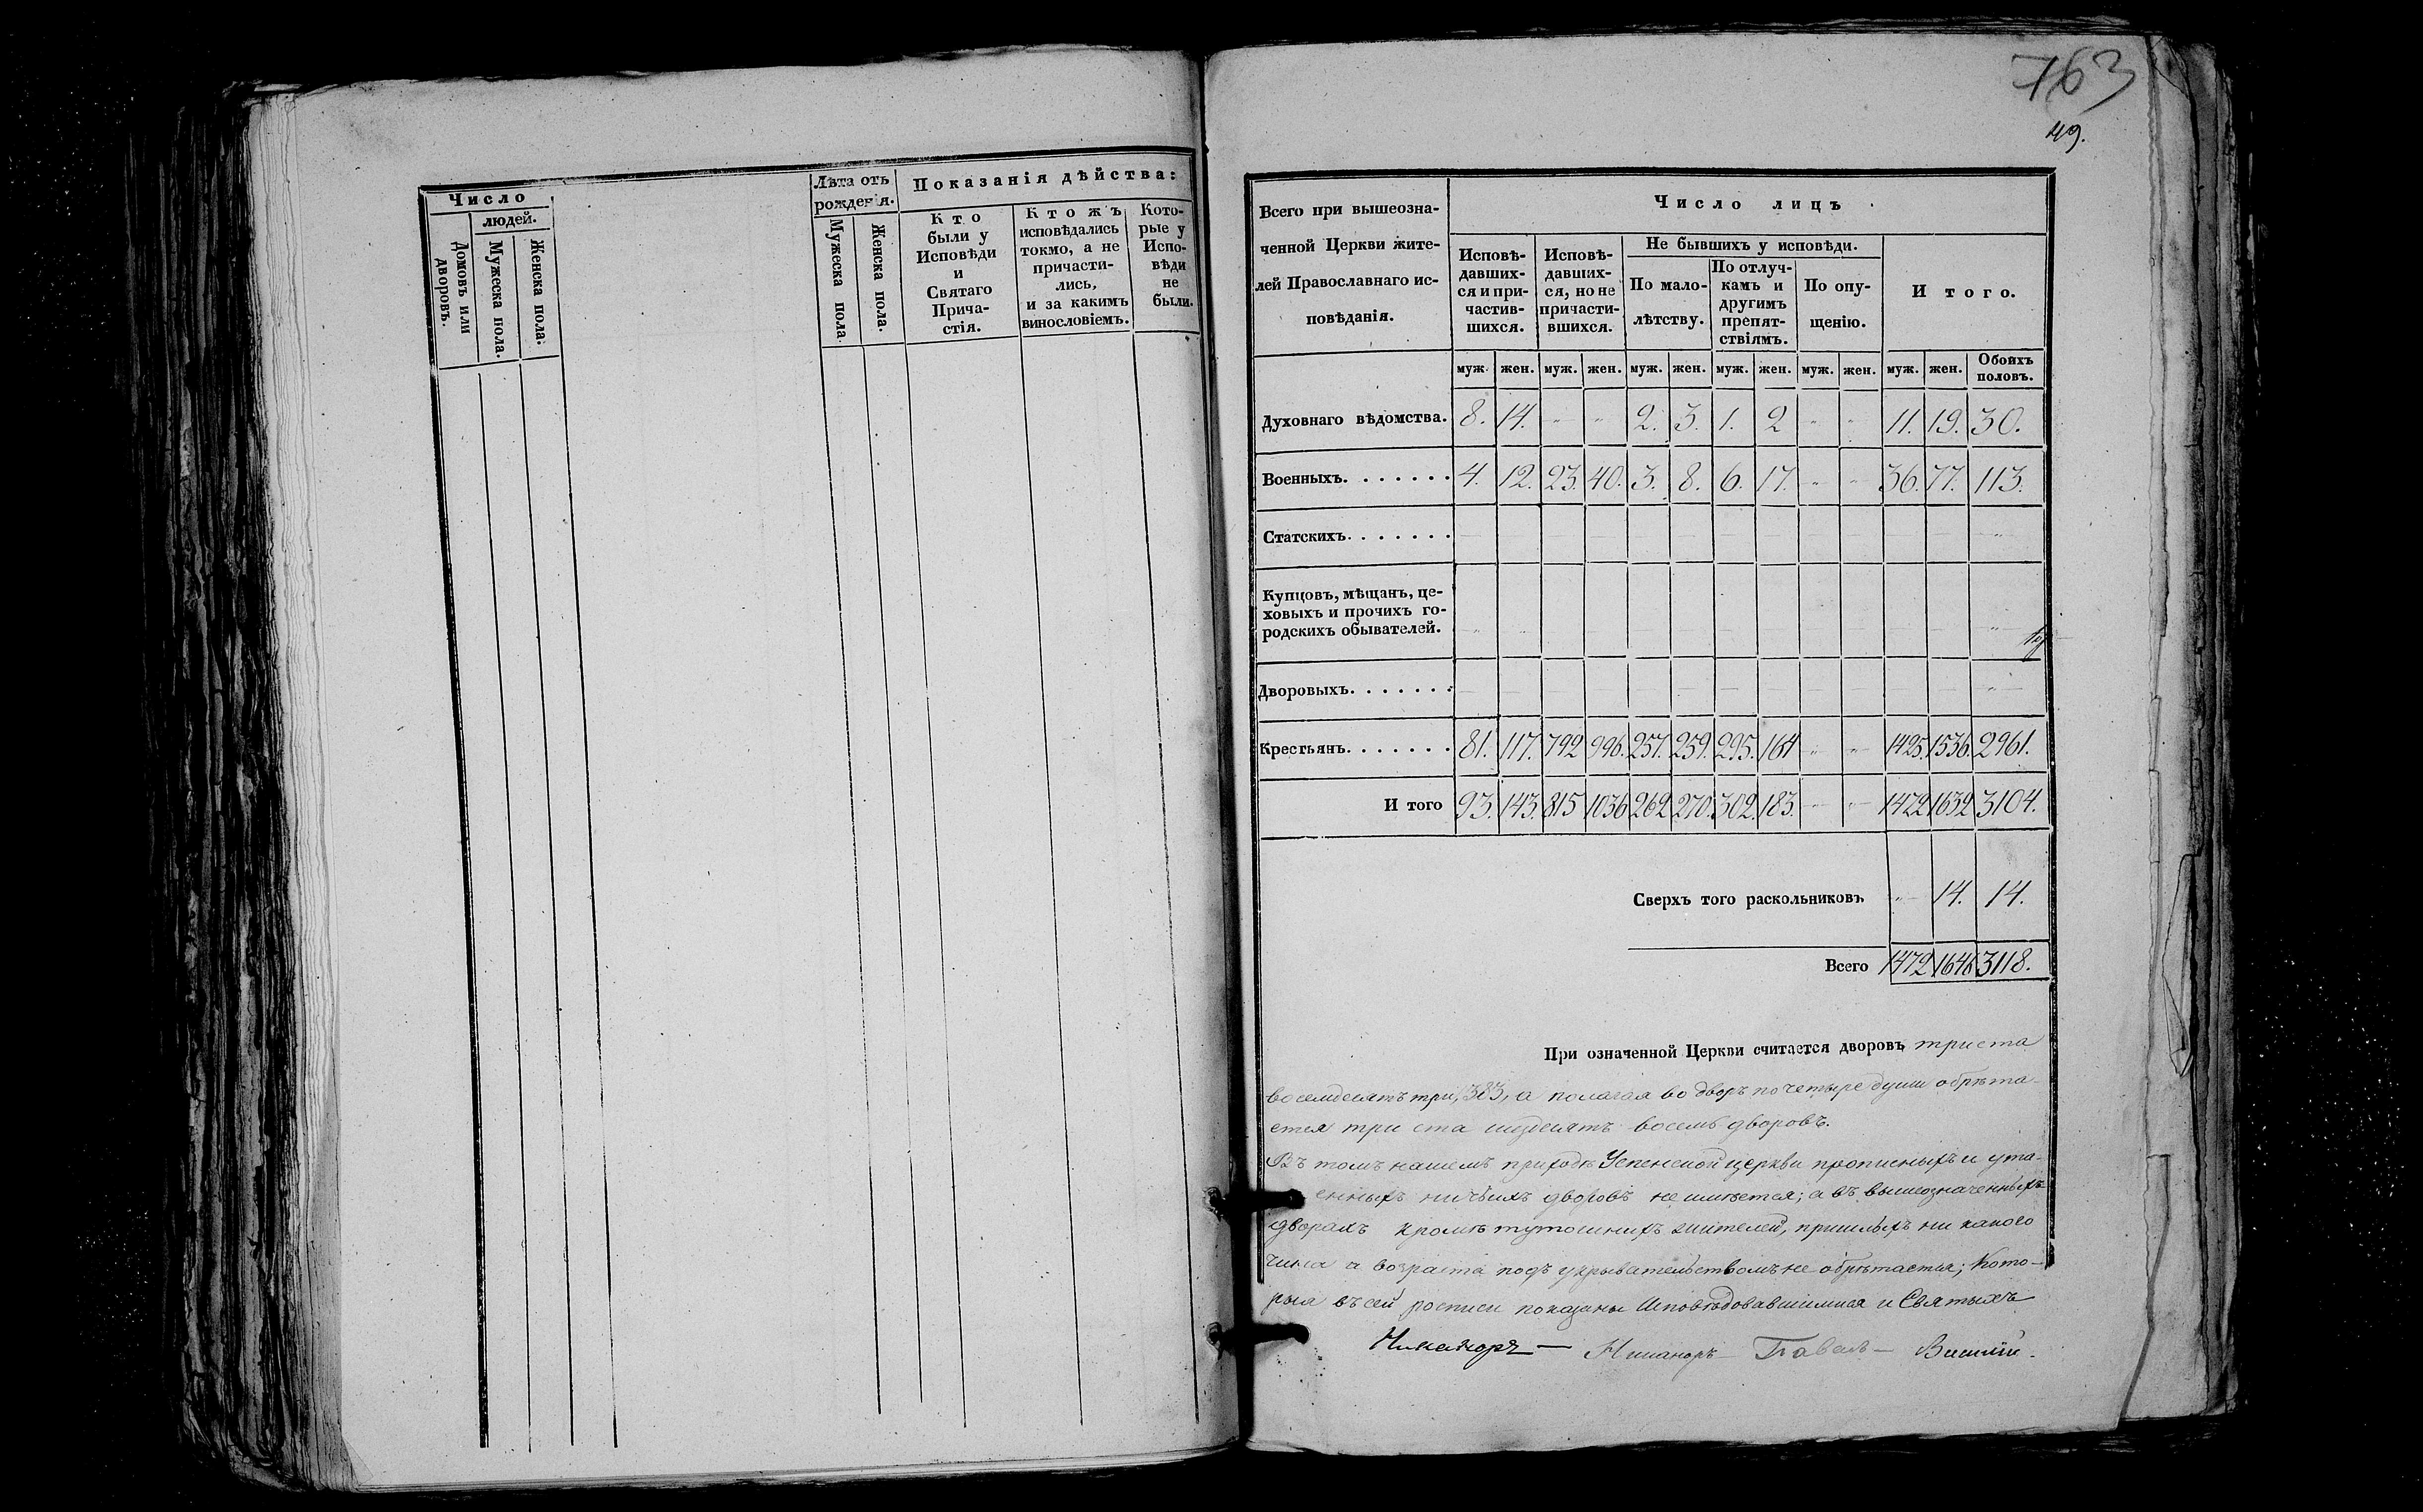 Число
людей.
Домовъ или дворовъ.
Мужеска пола.
Женска пола.
Лѣта отъ рожденія.
Мужеска пола
Женска пола.
Показанія дѣйства:
Кто были у Исповѣди и Святаго Прича-стія.
Кто жъ исповѣдались токмо, а не причасти-лись, и за какимъ винословіемъ.
Кото-рые у Испо-вѣди не были.
763
49.
Всего при вышеозна-
ченной Церкви жите-
лей Православнаго ис-
повѣданія.
Число лицъ
Исповѣ-давших-ся и при-частив-шихся.
Исповѣ-давших-ся, но не причасти-вшихся.
Не бывшихъ у исповѣди.
По мало-лѣтству.
По отлуч-камъ и другимъ препят-ствіямъ.
По опу-щенію.
И того.
муж. жен. муж. жен. муж. жен. муж. жен. муж. жен. муж. жен. Обоихъ половъ.
Духовнаго вѣдомства. 8. 14. " " 2. 3. 1. 2 " " 11. 19. 30.
Военныхъ. . . . . . . 4. 12. 23. 40. 3. 8. 6. 17. " " 36. 77. 113.
Статскихъ. . . . . . .
Купцовъ, мѣщанъ, це-
ховыхъ и прочихъ го-
родскихъ обывателей.
Дворовыхъ. . . . . . .
Крестьянъ. . . . . . . 81. 117. 792 996. 257. 259. 295. 164 " " 1425. 1536. 2961.
И того 93. 143. 815 1036 262 270. 302. 183. " " 1472 1632 3104.
Сверхъ того раскольниковъ " 14. 14.
Всего 1472 1646 3118.
При означенной Церкви считается дворовъ триста
восемдесятъ три, 383, а полагая во дворъ по четыре души обрѣта-
ется три ста шездесятъ восемь дворовъ.
Въ томъ нашемъ приходѣ Успенской церкви прописныхъ и ута-
енныхъ ничьихъ дворовъ не имѣется; а въ вышеозначенныхъ
дворахъ кромѣ тутошнихъ жителей, пришлыхъ ни какого
чина и возраста подъ укрывательствомъ не обрѣтается; Кото-
рыя въ сей росписи показаны Исповѣдовавшимися и Святыхъ
Никаноръ — Никаноръ — Павелъ — Василій.